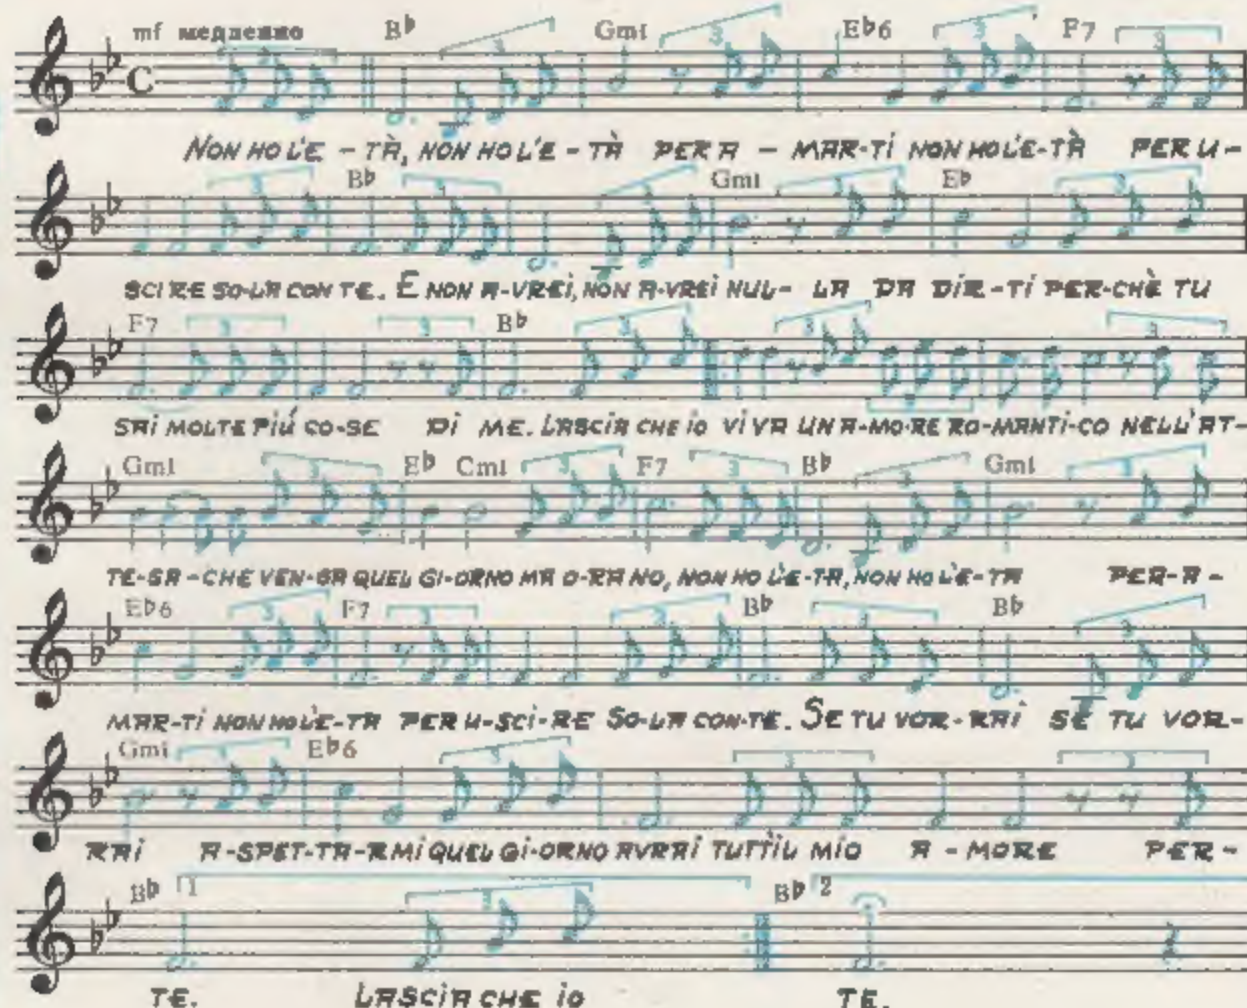 mf медленно B♭ Gm1 E♭6 F7
C 3 3 3 3 3
NON HO L'E - TÀ, NON HO L'E - TÀ PER A - MAR-TI NON HO L'E-TÀ PER U-
3 B♭ 3 3 Gm1 3 E♭ 3
SCIRE SO-LA CON TE. E NON A-VREI, NON A-VREI NUL- LA DA DIR-TI PER-CHÈ TU
F7 3 3 B♭ 3 3 3
SAI MOLTE PIÚ CO-SE DI ME. LASCIA CHE IO VIVA UN A-MO-RE RO-MANTI-CO NELL'AT-
Gm1 3 E♭ Cm1 3 F7 3 B♭ 3 Gm1 3
TE-SA-CHE VEN-GA QUEL GI-ORNO MA O-RA NO, NON HO L'E-TA, NON HO L'E-TA PER-A-
E♭6 3 F7 3 3 B♭ 3 B♭ 3
MAR-TI NON HO L'E-TA PER U-SCI-RE SO-LA CON-TE. SE TU VOR-RAI SE TU VOR-
Gm1 3 E♭6 3 3 3
RAI A-SPET-TA-RMI QUEL GI-ORNO AVRAI TUTT'IL MIO A-MORE PER-
B♭ 1 3 B♭ 2
TE. LASCIA CHE IO TE.